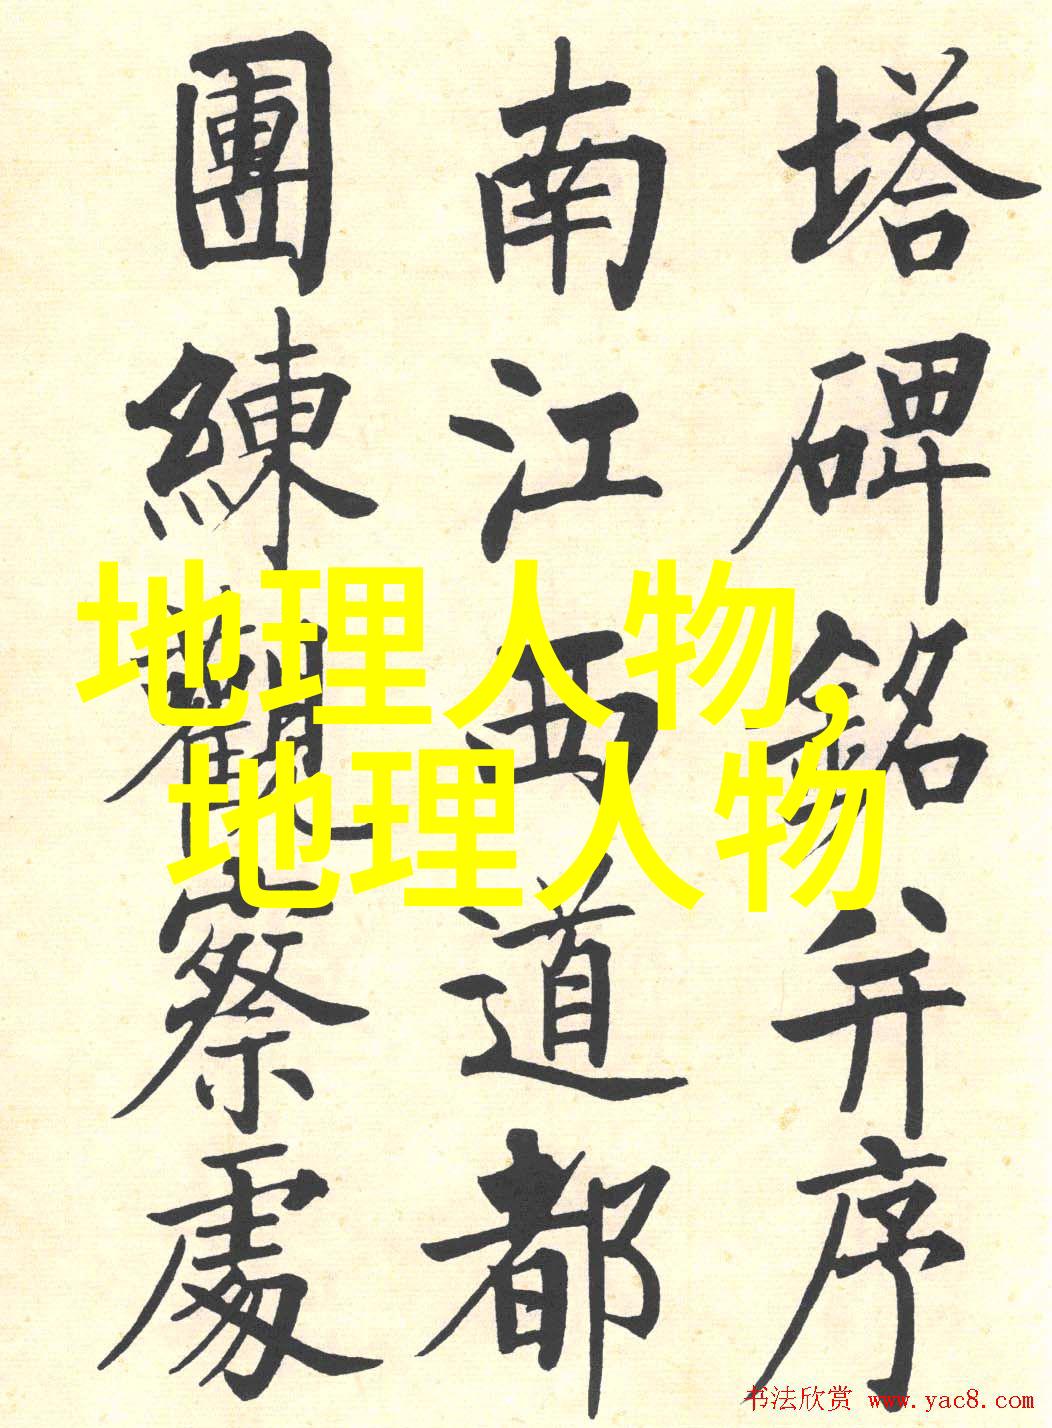 塔碑銘并序
南江西道都
團練觀察處
地理人物,
地理人物
书法欣赏 www.yac8.com